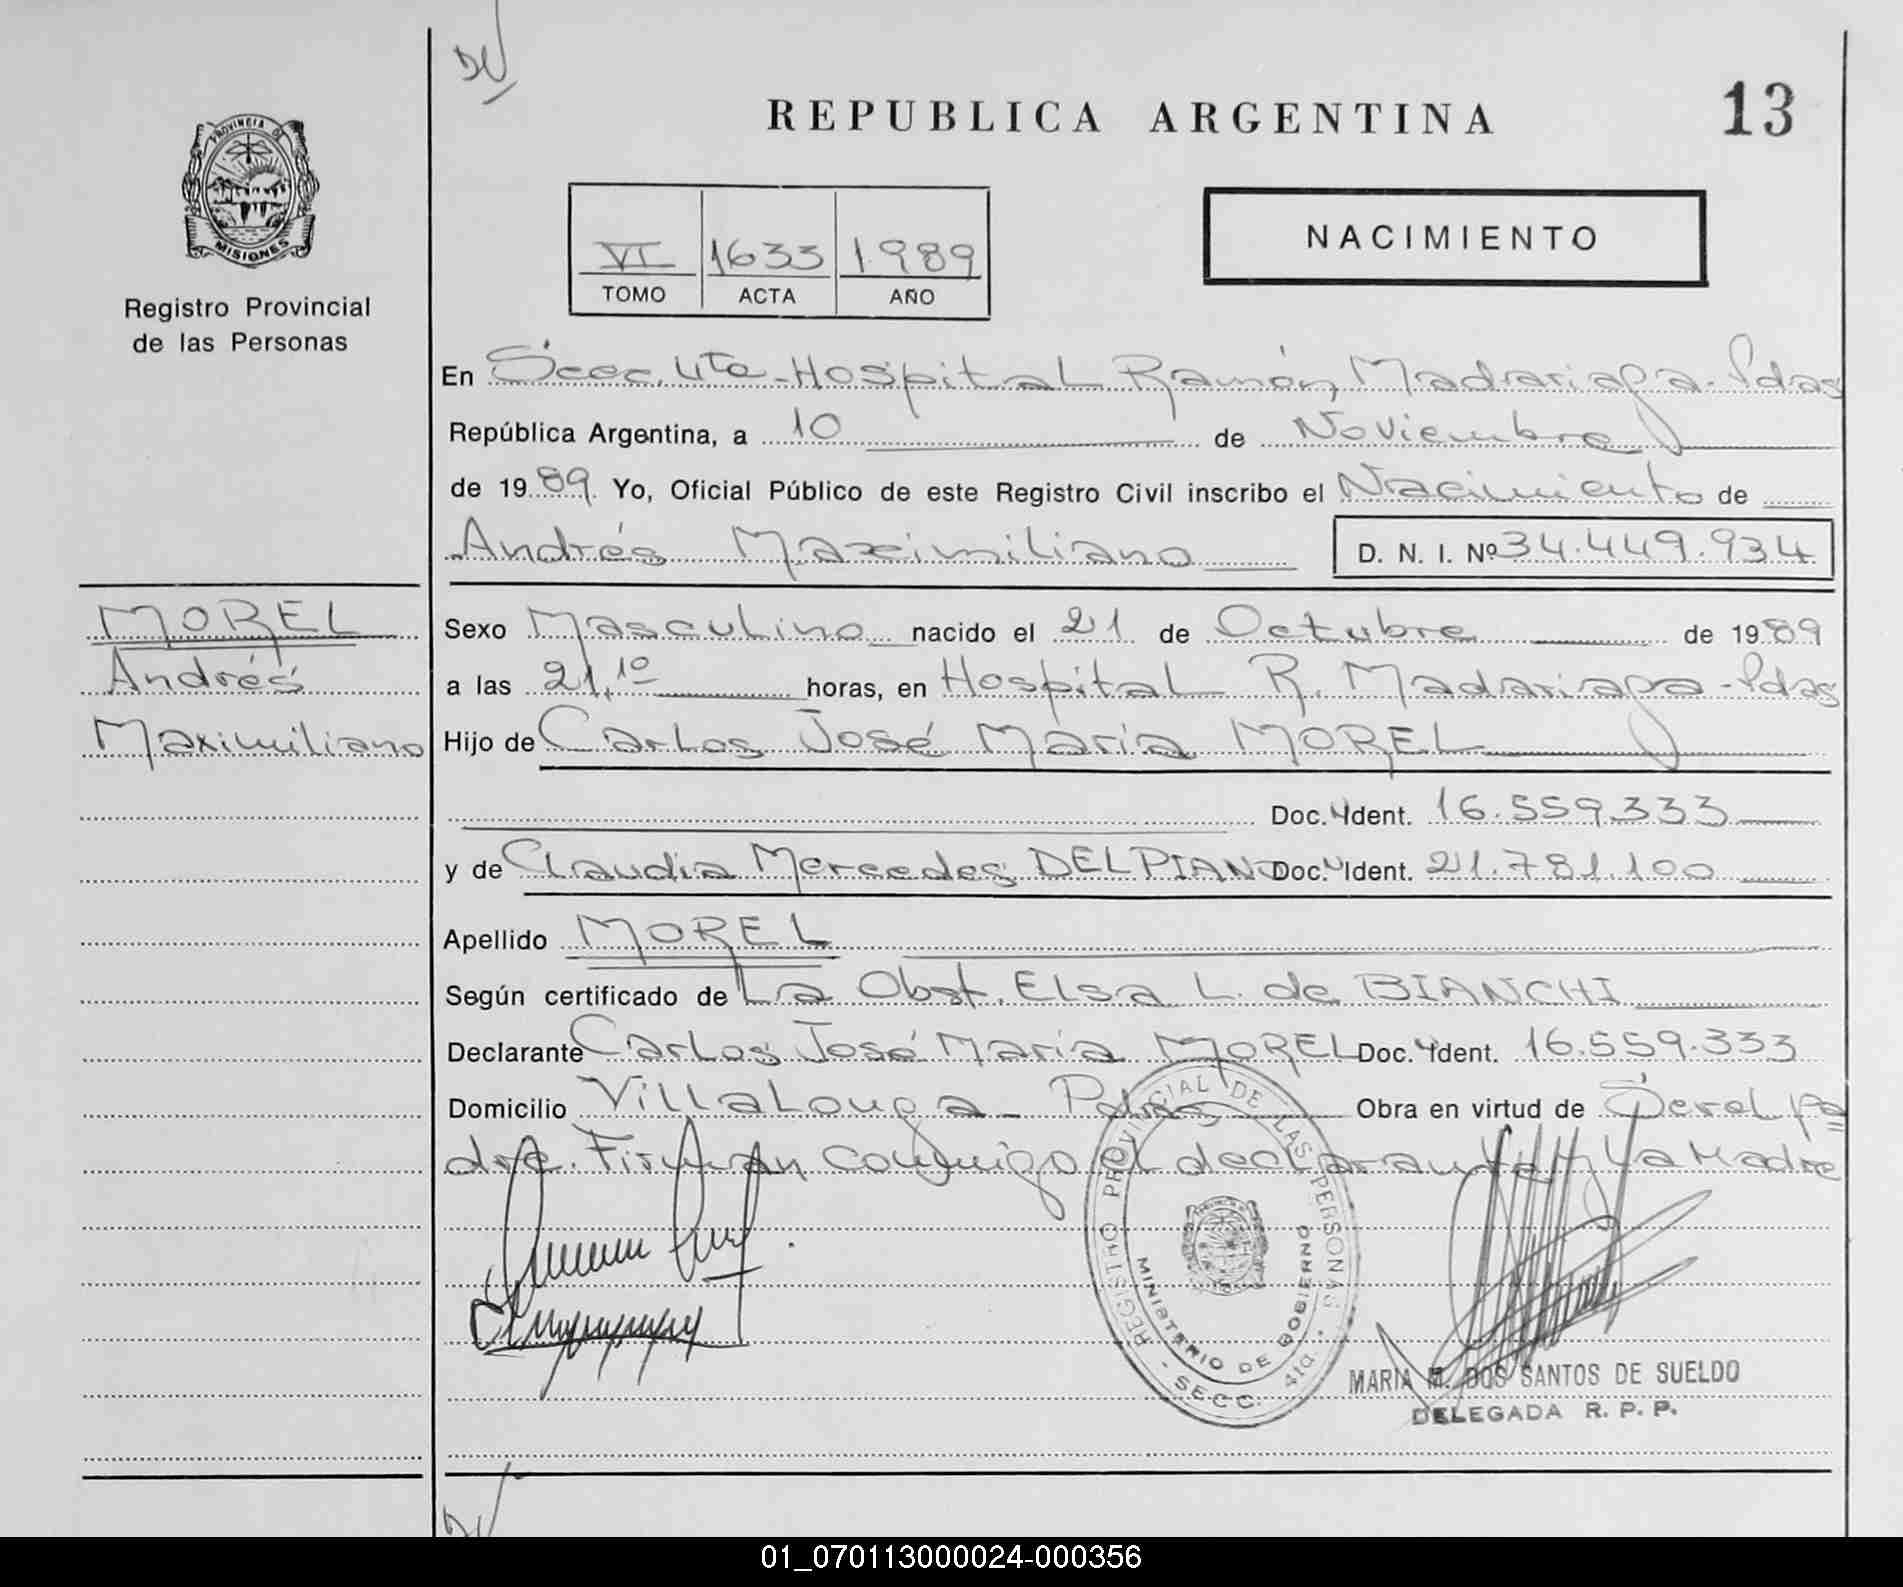 DV
REPUBLICA ARGENTINA
13
PROVINCIA DE
MISIONES
Registro Provincial
de las Personas
NACIMIENTO
VI 1633 1.989
TOMO ACTA AÑO
En Secc. 4ta-Hospital Ramón Madariaga-Pdas
República Argentina, a 10 de Noviembre
de 1989. Yo, Oficial Público de este Registro Civil inscribo el Nacimiento de
Andrés Maximiliano D. N. I. Nº 34.449.934
MOREL
Andrés
Maximiliano
Sexo Masculino nacido el 21 de Octubre de 1989
a las 21,10 horas, en Hospital R. Madariaga-Pdas
Hijo de Carlos José María MOREL
Doc. Ident. 16.559.333
y de Claudia Mercedes DELPIANO Doc. Ident. 21.781.100
Apellido MOREL
Según certificado de La Obst. Elsa L. de BIANCHI
Declarante Carlos José María MOREL Doc. Ident. 16.559.333
Domicilio Villalonga - Pdas Obra en virtud de Ser el pa
dre. Firman conmigo el declarante y La Madre
REGISTRO PROVINCIAL DE LAS PERSONAS
MINISTERIO DE GOBIERNO
- SECC. 4ta. -
MARIA M. DOS SANTOS DE SUELDO
DELEGADA R. P. P.
DV
01_070113000024-000356